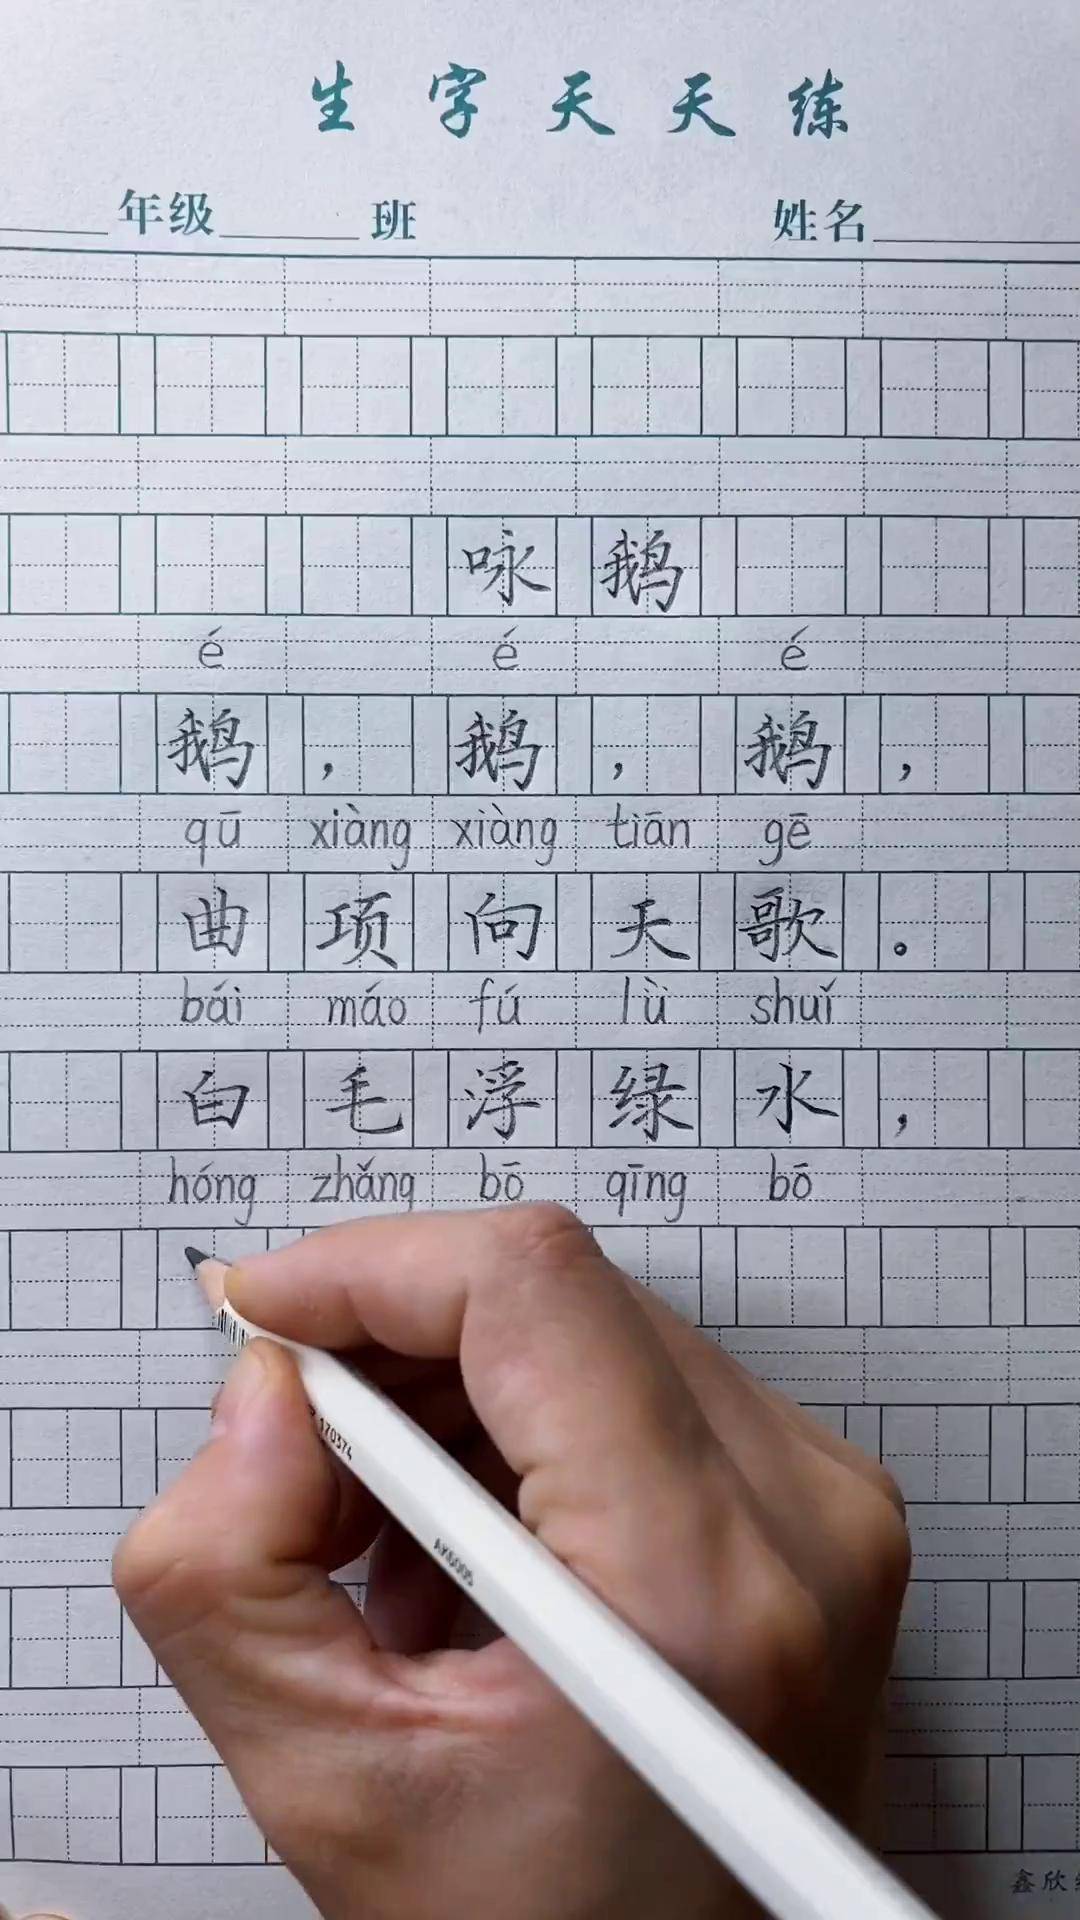 生字天天练
年级 班 姓名
咏鹅
é é é
鹅，鹅，鹅，
qū xiàng xiàng tiān gē
曲项向天歌。
bái máo fú lǜ shuǐ
白毛浮绿水，
hóng zhǎng bō qīng bō
170374
AK6005
鑫欣